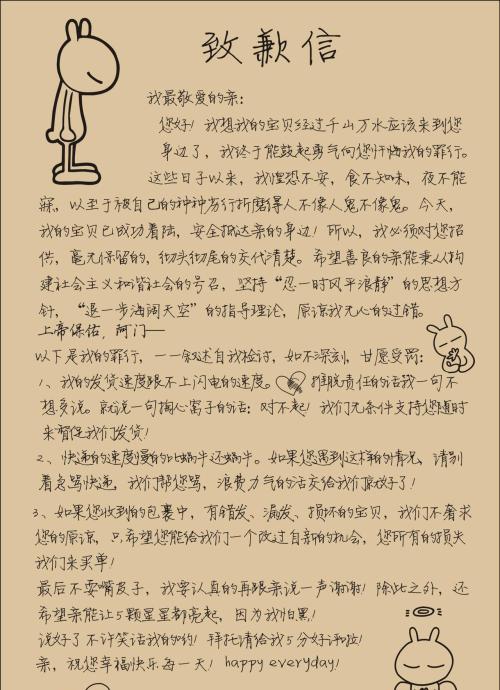 致歉信
我最敬爱的亲：
您好！我想我的宝贝经过千山万水应该来到您
身边了，我终于能鼓起勇气向您忏悔我的罪行。
这些日子以来，我惶恐不安，食不知味，夜不能
寐，以至于被自己的种种劣行折磨得人不像人鬼不像鬼。今天，
我的宝贝已成功着陆，安全抵达亲的身边！所以，我必须对您招
供，毫无保留的，彻头彻尾的交代清楚。希望善良的亲能秉从构
建社会主义和谐社会的号召，坚持“忍一时风平浪静”的思想方
针，“退一步海阔天空”的指导理论，原谅我无心的过错。
上帝保佑，阿门——
以下是我的罪行，一一叙述自我检讨，如不深刻，甘愿受罚：
1、我的发货速度跟不上闪电的速度。推脱责任的话我一句不
想多说。就说一句掏心窝子的话：对不起！我们无条件支持您随时
来督促我们发货！
2、快递的速度慢的比蜗牛还蜗牛。如果您遇到这样的情况，请别
着急骂快递，我们帮您骂，浪费力气的活交给我们做好了！
3、如果您收到的包裹中，有错发、漏发、损坏的宝贝，我们不奢求
您的原谅，只希望您能给我们一个改过自新的机会，您所有的损失
我们来买单！
最后不耍嘴皮子，我要认真的再跟亲说一声谢谢！除此之外，还
希望亲能让5颗星星都亮起，因为我怕黑！
说好了不许笑话我的哟！拜托请给我5分好评啦！
亲，祝您幸福快乐每一天！happy everyday！